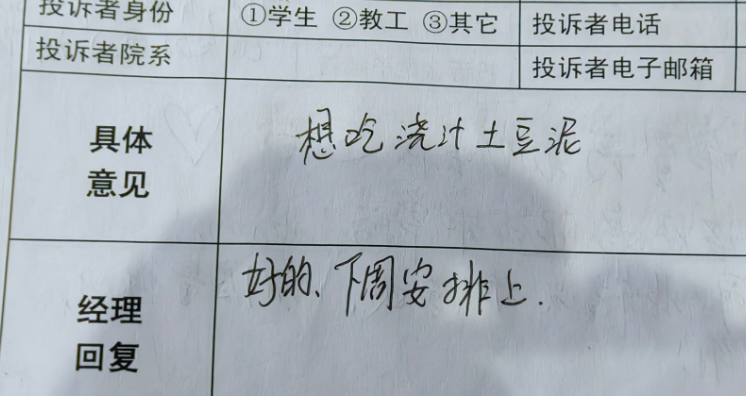 投诉者身份 ①学生 ②教工 ③其它 投诉者电话
投诉者院系 投诉者电子邮箱
具体意见
想吃浇汁土豆泥
经理回复
好的、下周安排上.